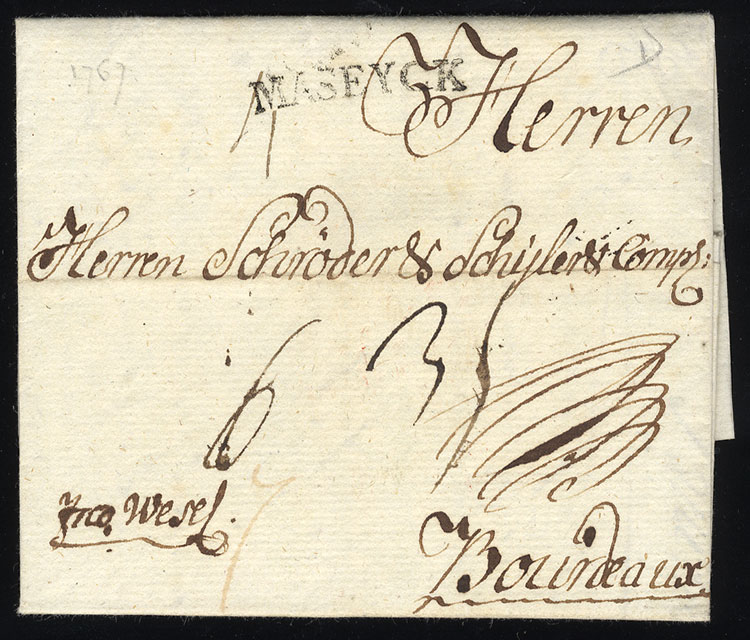 1767
MASEYCK
Herren
Herren Schröder & Schijler & Comps:
6
frco Wesel.
Bourdeaux